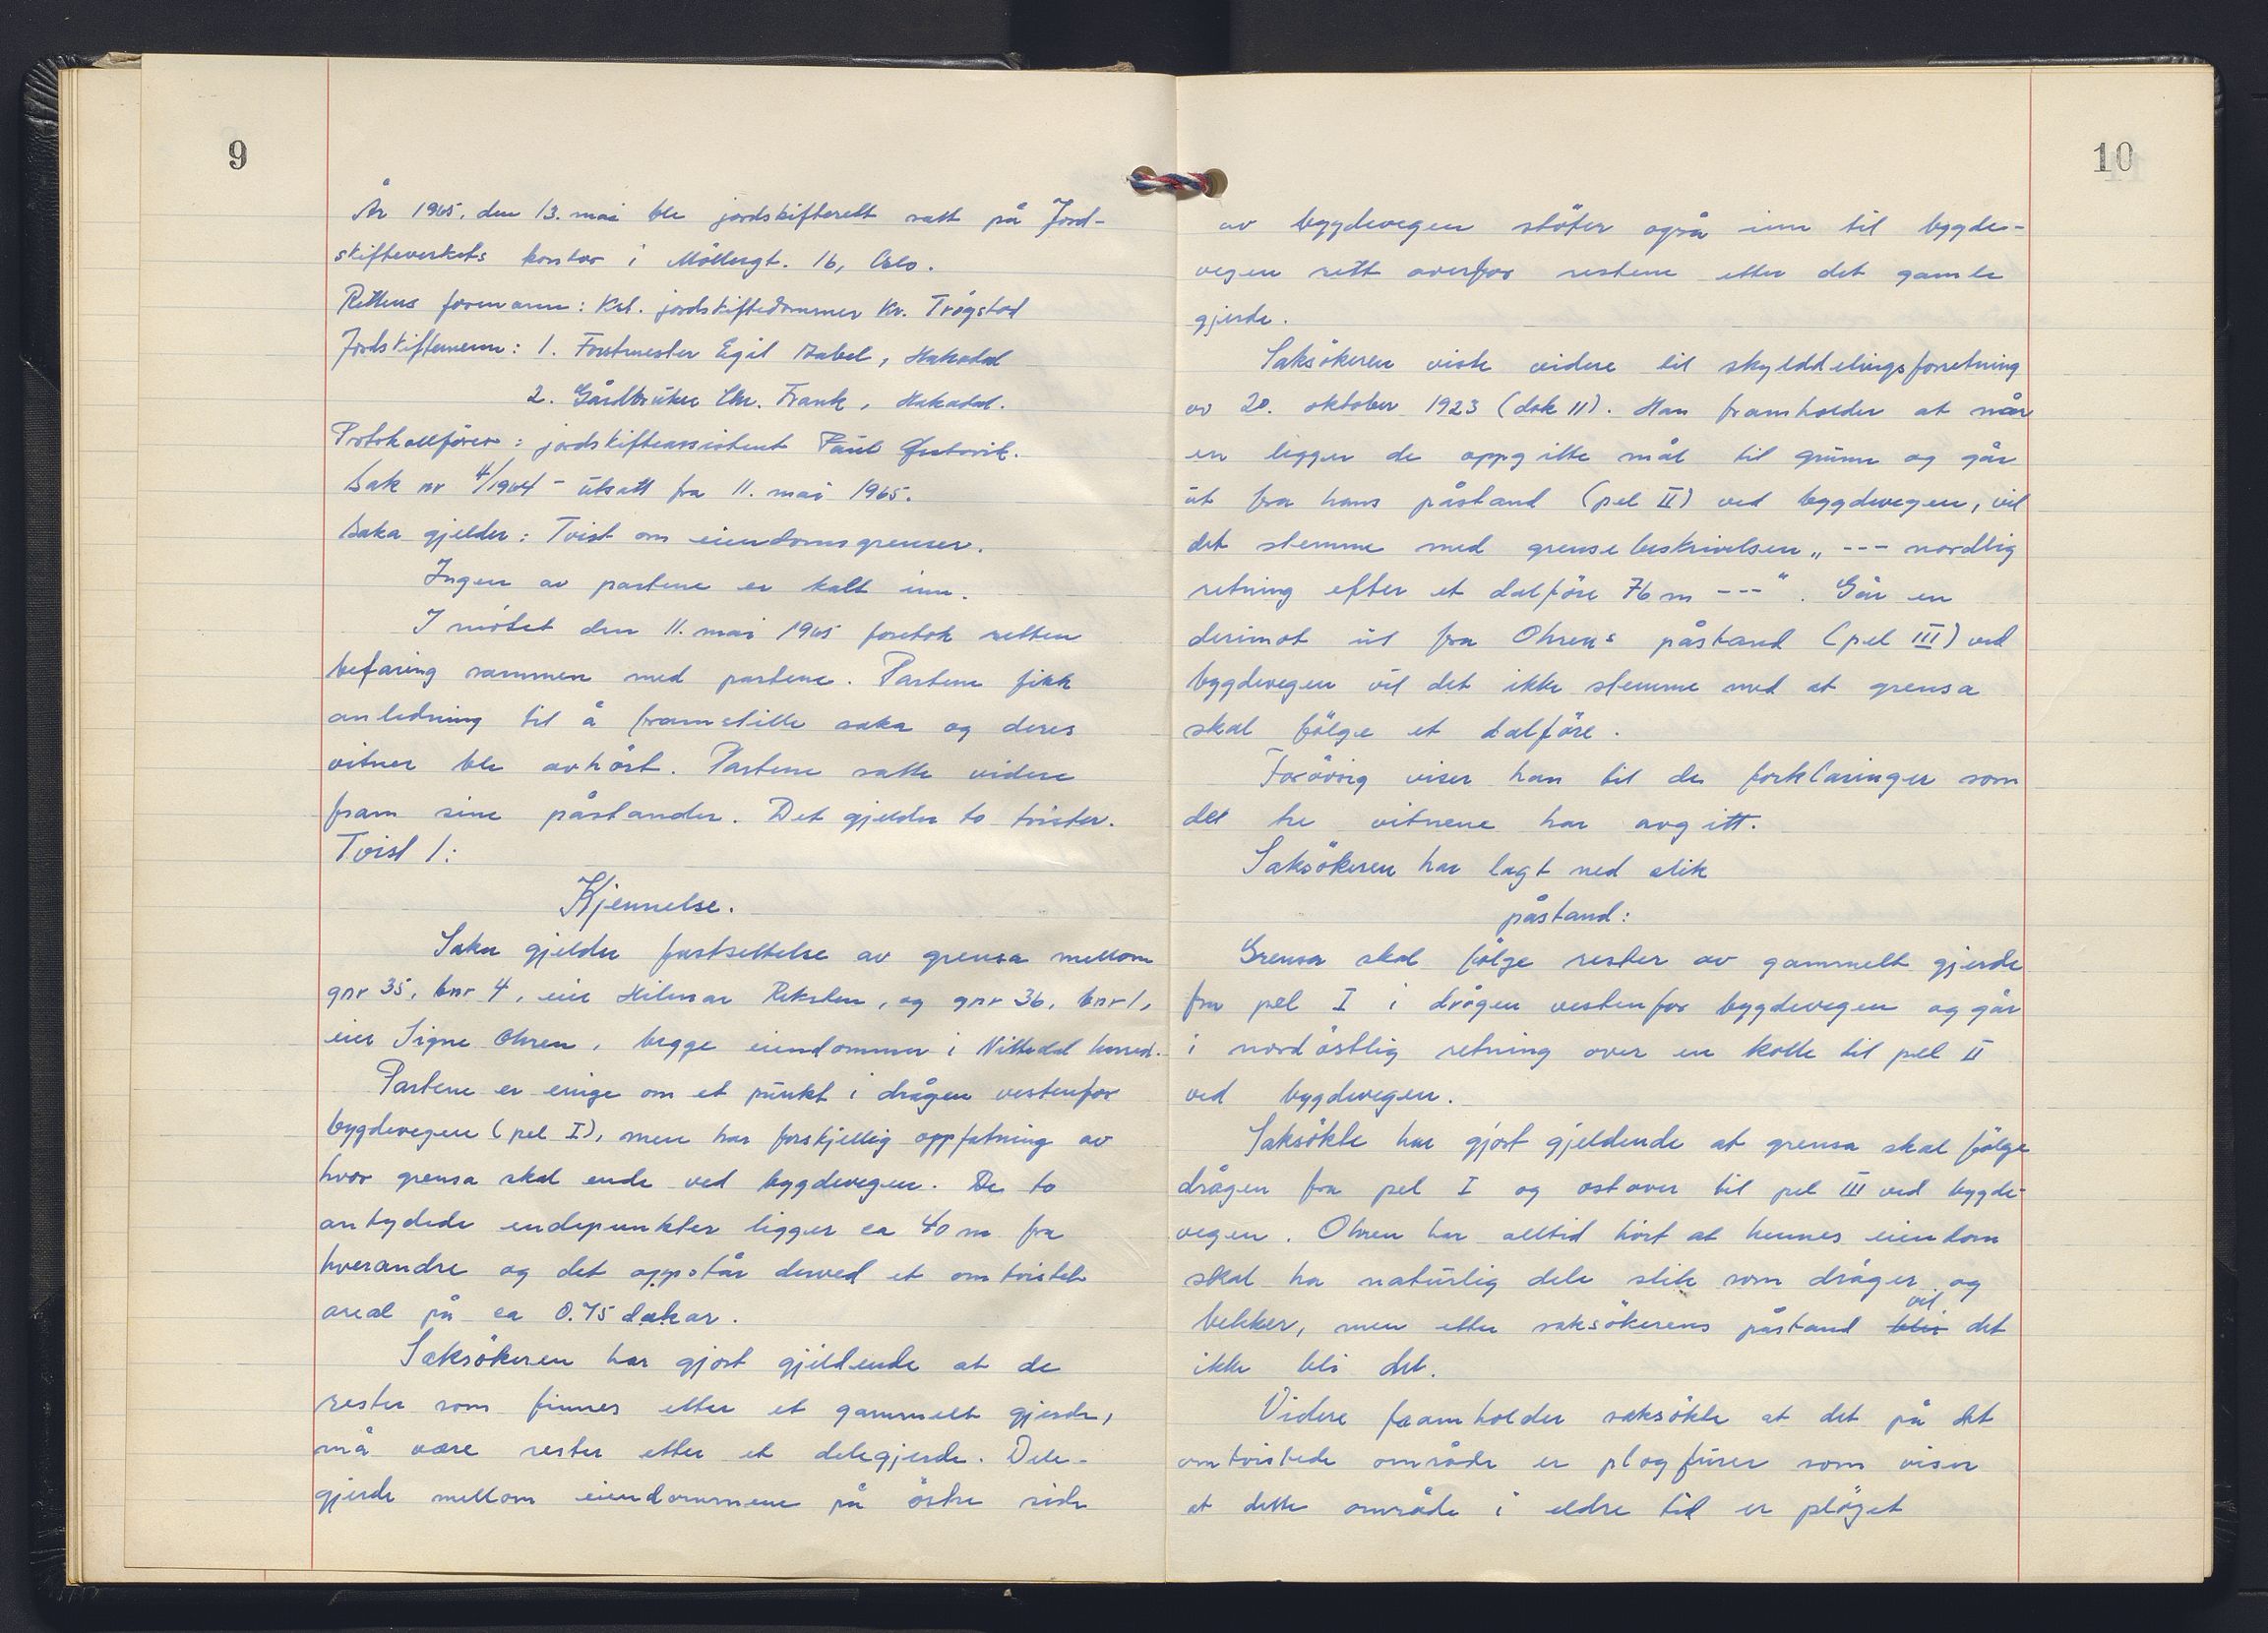 9
År 1965, den 13. mai ble jordskifterett satt på Jord-
skifteverkets kontor i Möllergt. 16, Oslo.
Rettens formann: Kst. jordskiftedommer Kr. Trögstad
Jordskiftemenn: 1. Forstmester Egil Isabel, Hakadal
2. Gårdbruker Chr. Frank, Hakadal.
Protokollförer: jordskifteassistent Paul
Sak nr 4/1964 - utsatt fra 11. mai 1965.
Saka gjelder: Tvist om eiendomsgrenser.
Ingen av partene er kalt inn.
I mötet den 11. mai 1965 foretok retten
befaring sammen med partene. Partene fikk
anledning til å framstille saka og deres
vitner ble avhört. Partene satte videre
fram sine påstander. Det gjelder to tvister.
Tvist 1:
Kjennelse.
Saka gjelder fastsettelse av grensa mellom
gnr 35, bnr 4, eier Hilmar Reksten, og gnr 36, bnr 1,
eier Signe Ohren, begge eiendommer i Nittedal herred.
Partene er enige om et punkt i drågen vestenfor
bygdevegen (pel I), men har forskjellig oppfatning av
hvor grensa skal ende ved bygdevegen. De to
antydede endepunkter ligger ca 40 m fra
hverandre og det oppstår derved et omtvistet
areal på ca 0.75 dekar.
Saksökeren har gjort gjeldende at de
rester som finnes etter et gammelt gjerde,
må være rester etter et delegjerde. Dele-
gjerde mellom eiendommene på östre side
10
av bygdevegen stöter også inn til bygde-
vegen rett overfor restene etter det gamle
gjerde.
Saksökeren viste videre til skylddelingsforretning
av 20. oktober 1923 (dok 11). Han framholder at når
en legger de oppgitte mål til grunn og går
ut fra hans påstand (pel II) ved bygdevegen, vil
det stemme med grensebeskrivelsen „ --- nordlig
retning efter et dalföre 76 m --- “. Går en
derimot ut fra Ohrens påstand (pel III) ved
bygdevegen vil det ikke stemme med at grensa
skal fölge et dalföre.
Forövrig viser han til de forklaringer som
de tre vitnene har avgitt.
Saksökeren har lagt ned slik
påstand:
Grensa skal fölge rester av gammelt gjerde
fra pel I i drågen vestenfor bygdevegen og går
i nordöstlig retning over en kolle til pel II
ved bygdevegen.
Saksökte har gjort gjeldende at grensa skal fölge
drågen fra pel I og ostover til pel III ved bygde-
vegen. Ohren har alltid hört at hennes eiendom
skal ha naturlig dele slik som dråger og
bekker, men etter saksökerens påstand blir vil det
ikke bli det.
Videre framholder saksökte at det på det
omtvistede område er plogfurer som viser
at dette område i eldre tid er plöyet